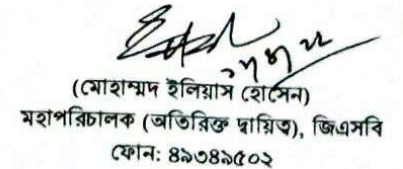 (মোহাম্মদ ইলিয়াস হোসেন)
মহাপরিচালক (অতিরিক্ত দায়িত্ব), জিএসবি
ফোন: ৪৯৩৪৯৫০২